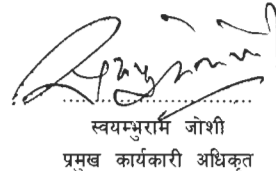 स्वयम्भुराम जोशी
प्रमुख कार्यकारी अधिकृत